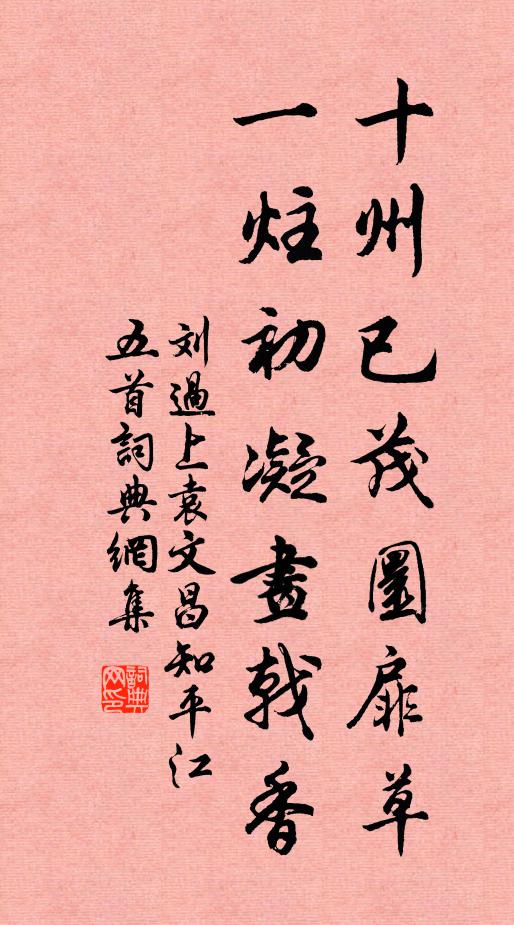 十州已茂圜扉草
一炷初凝畫戟香
刘過上袁文昌知平江
五首詞典網集
詞典网印